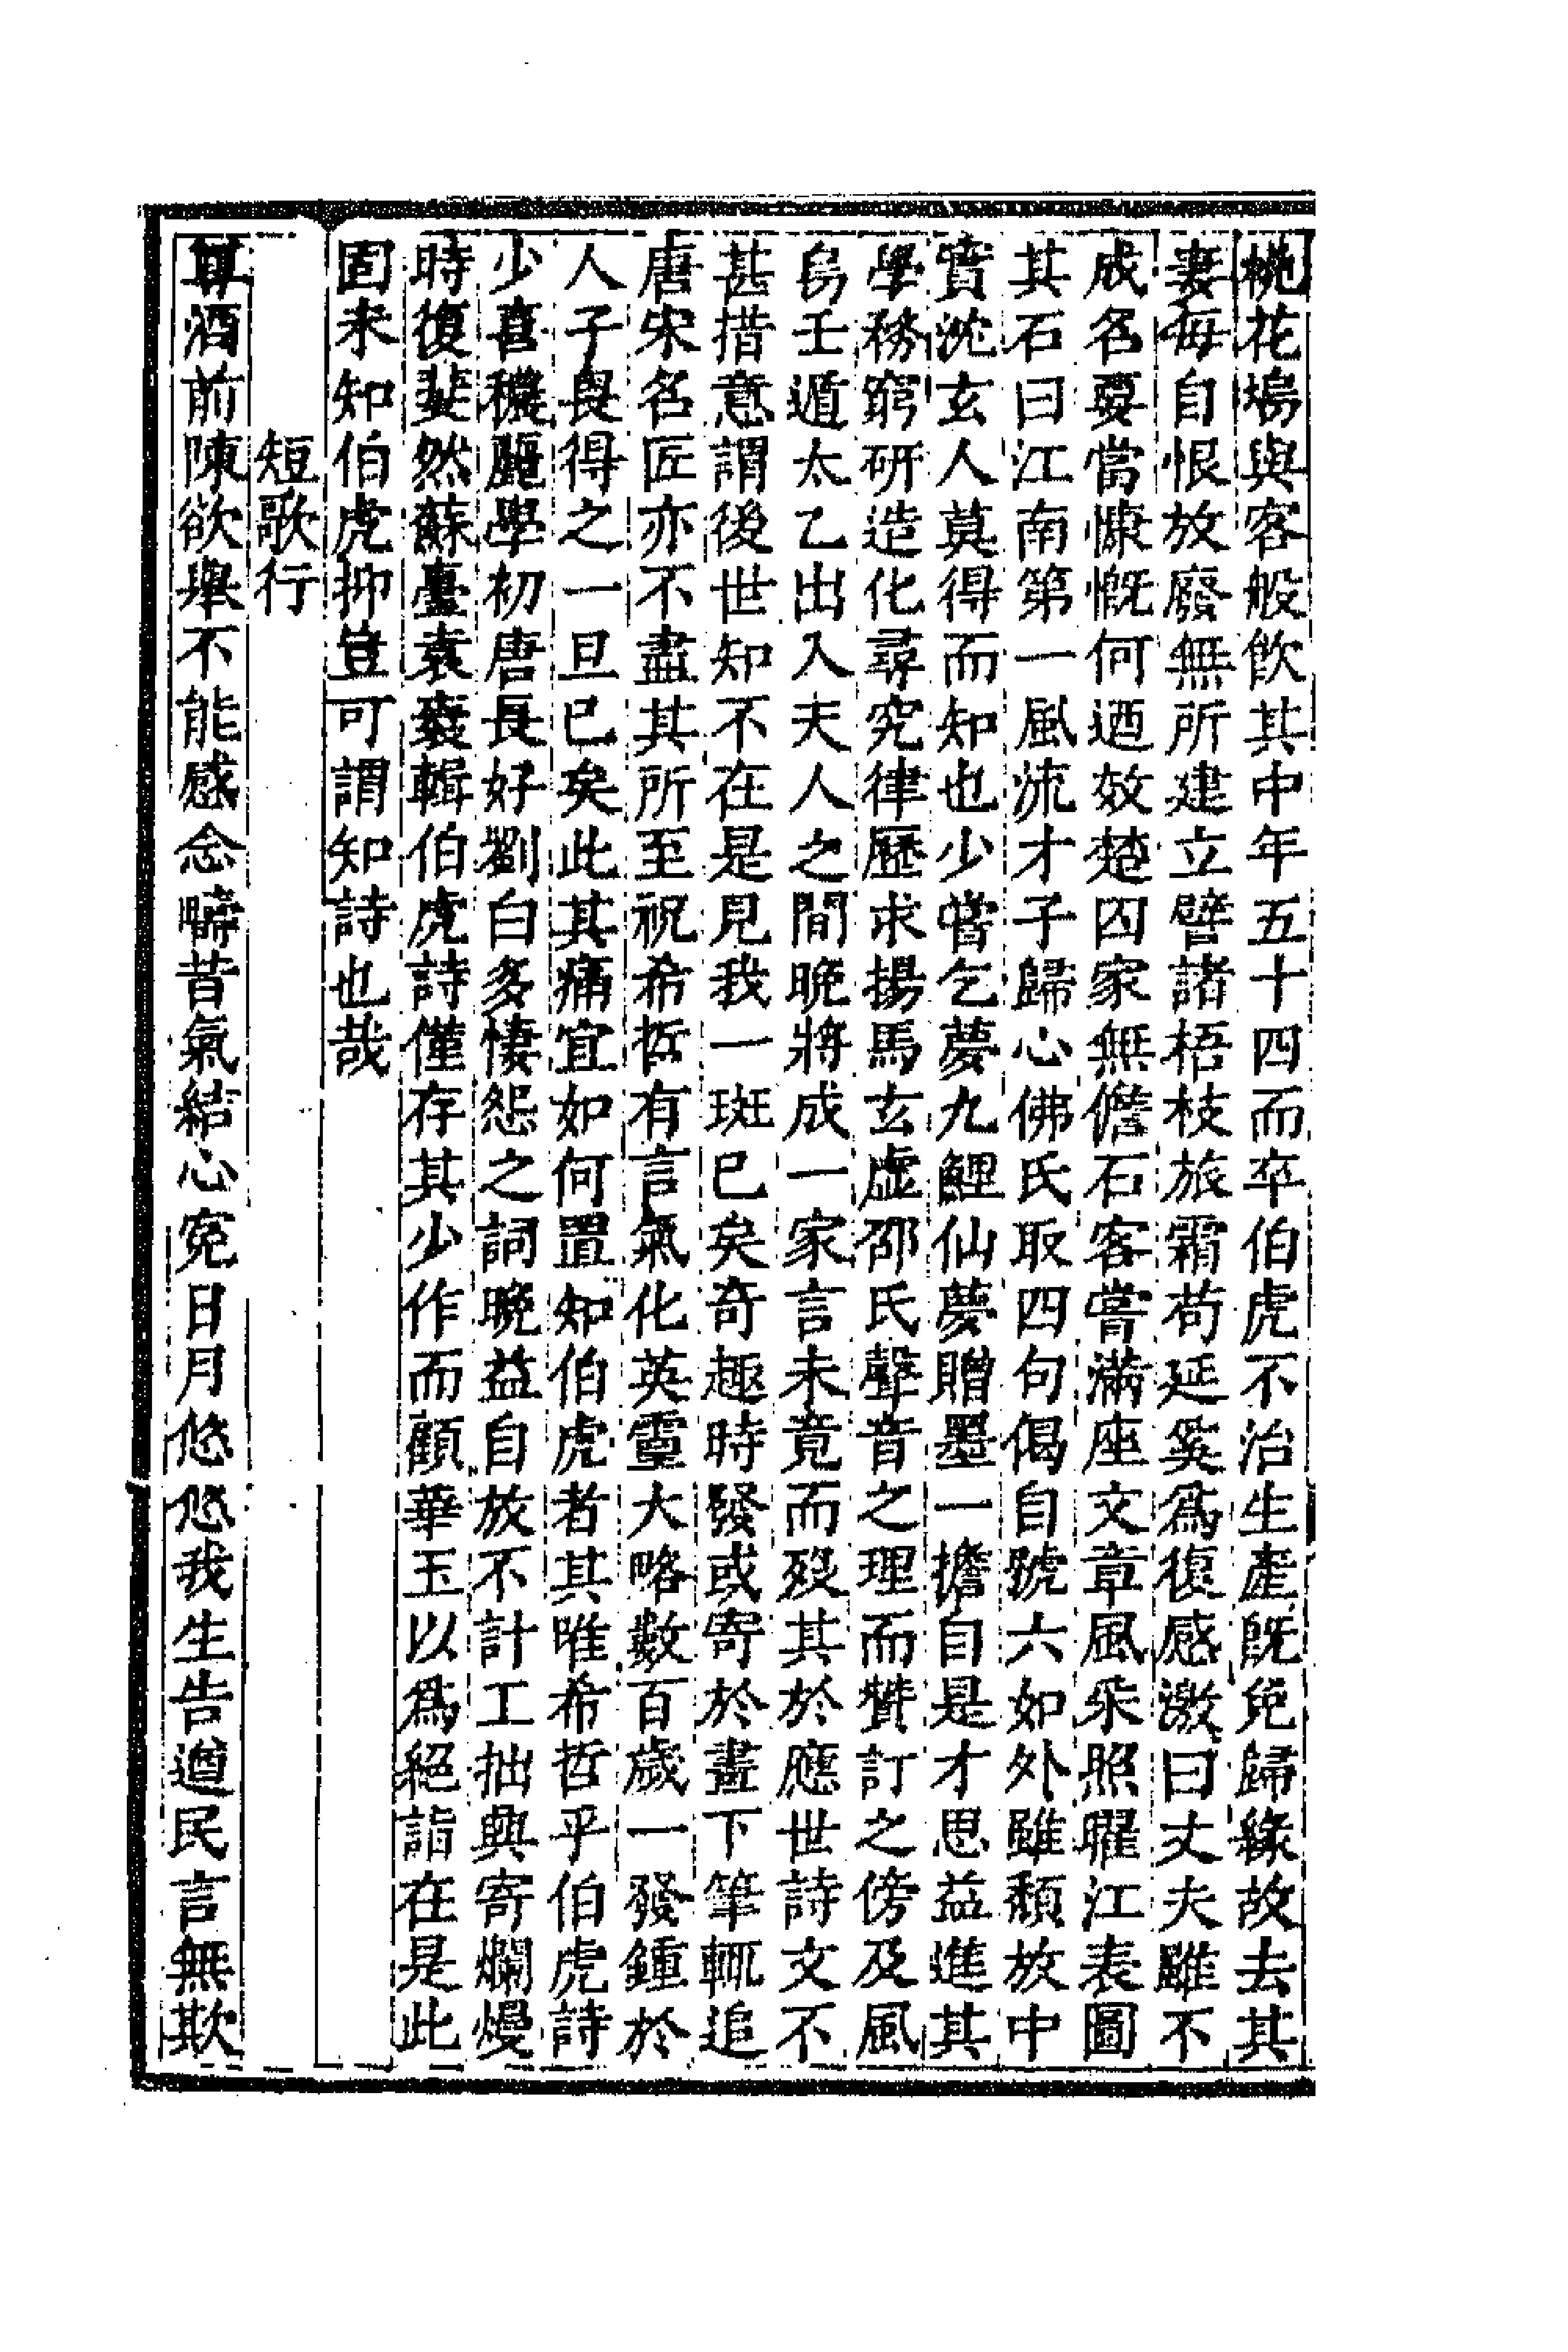 桃花塢與客般飲其中年五十四而卒伯虎不治生產旣免歸緣故去其
妻每自恨放廢無所建立譬諸梧枝旅霜苟延奚爲復感激曰丈夫雖不
成名要當慷慨何迺效楚囚家無儋石客嘗滿座文章風采照曜江表圖
其石曰江南第一風流才子歸心佛氏取四句偈自號六如外雖頹放中
實沈玄人莫得而知也少嘗乞夢九鯉仙夢贈墨一擔自是才思益進其
學務窮研造化尋究律歷求揚馬玄虛邵氏聲音之理而贊訂之傍及風
鳥壬遁太乙出入天人之間晚將成一家言未竟而歿其於應世詩文不
甚措意謂後世知不在是見我一斑已矣奇趣時發或寄於畫下筆輒追
唐宋名匠亦不盡其所至祝希哲有言氣化英靈大略數百歲一發鍾於
人子畏得之一旦已矣此其痛宜如何置知伯虎者其唯希哲乎伯虎詩
少喜穠麗學初唐長好劉白多悽怨之詞晚益自放不計工拙興寄爛熳
時復斐然蘇臺袁袠輯伯虎詩僅存其少作而顧華玉以爲絕詣在是此
固未知伯虎抑豈可謂知詩也哉
短歌行
尊酒前陳欲舉不能感念疇昔氣結心寃日月悠悠我生告遒民言無欺